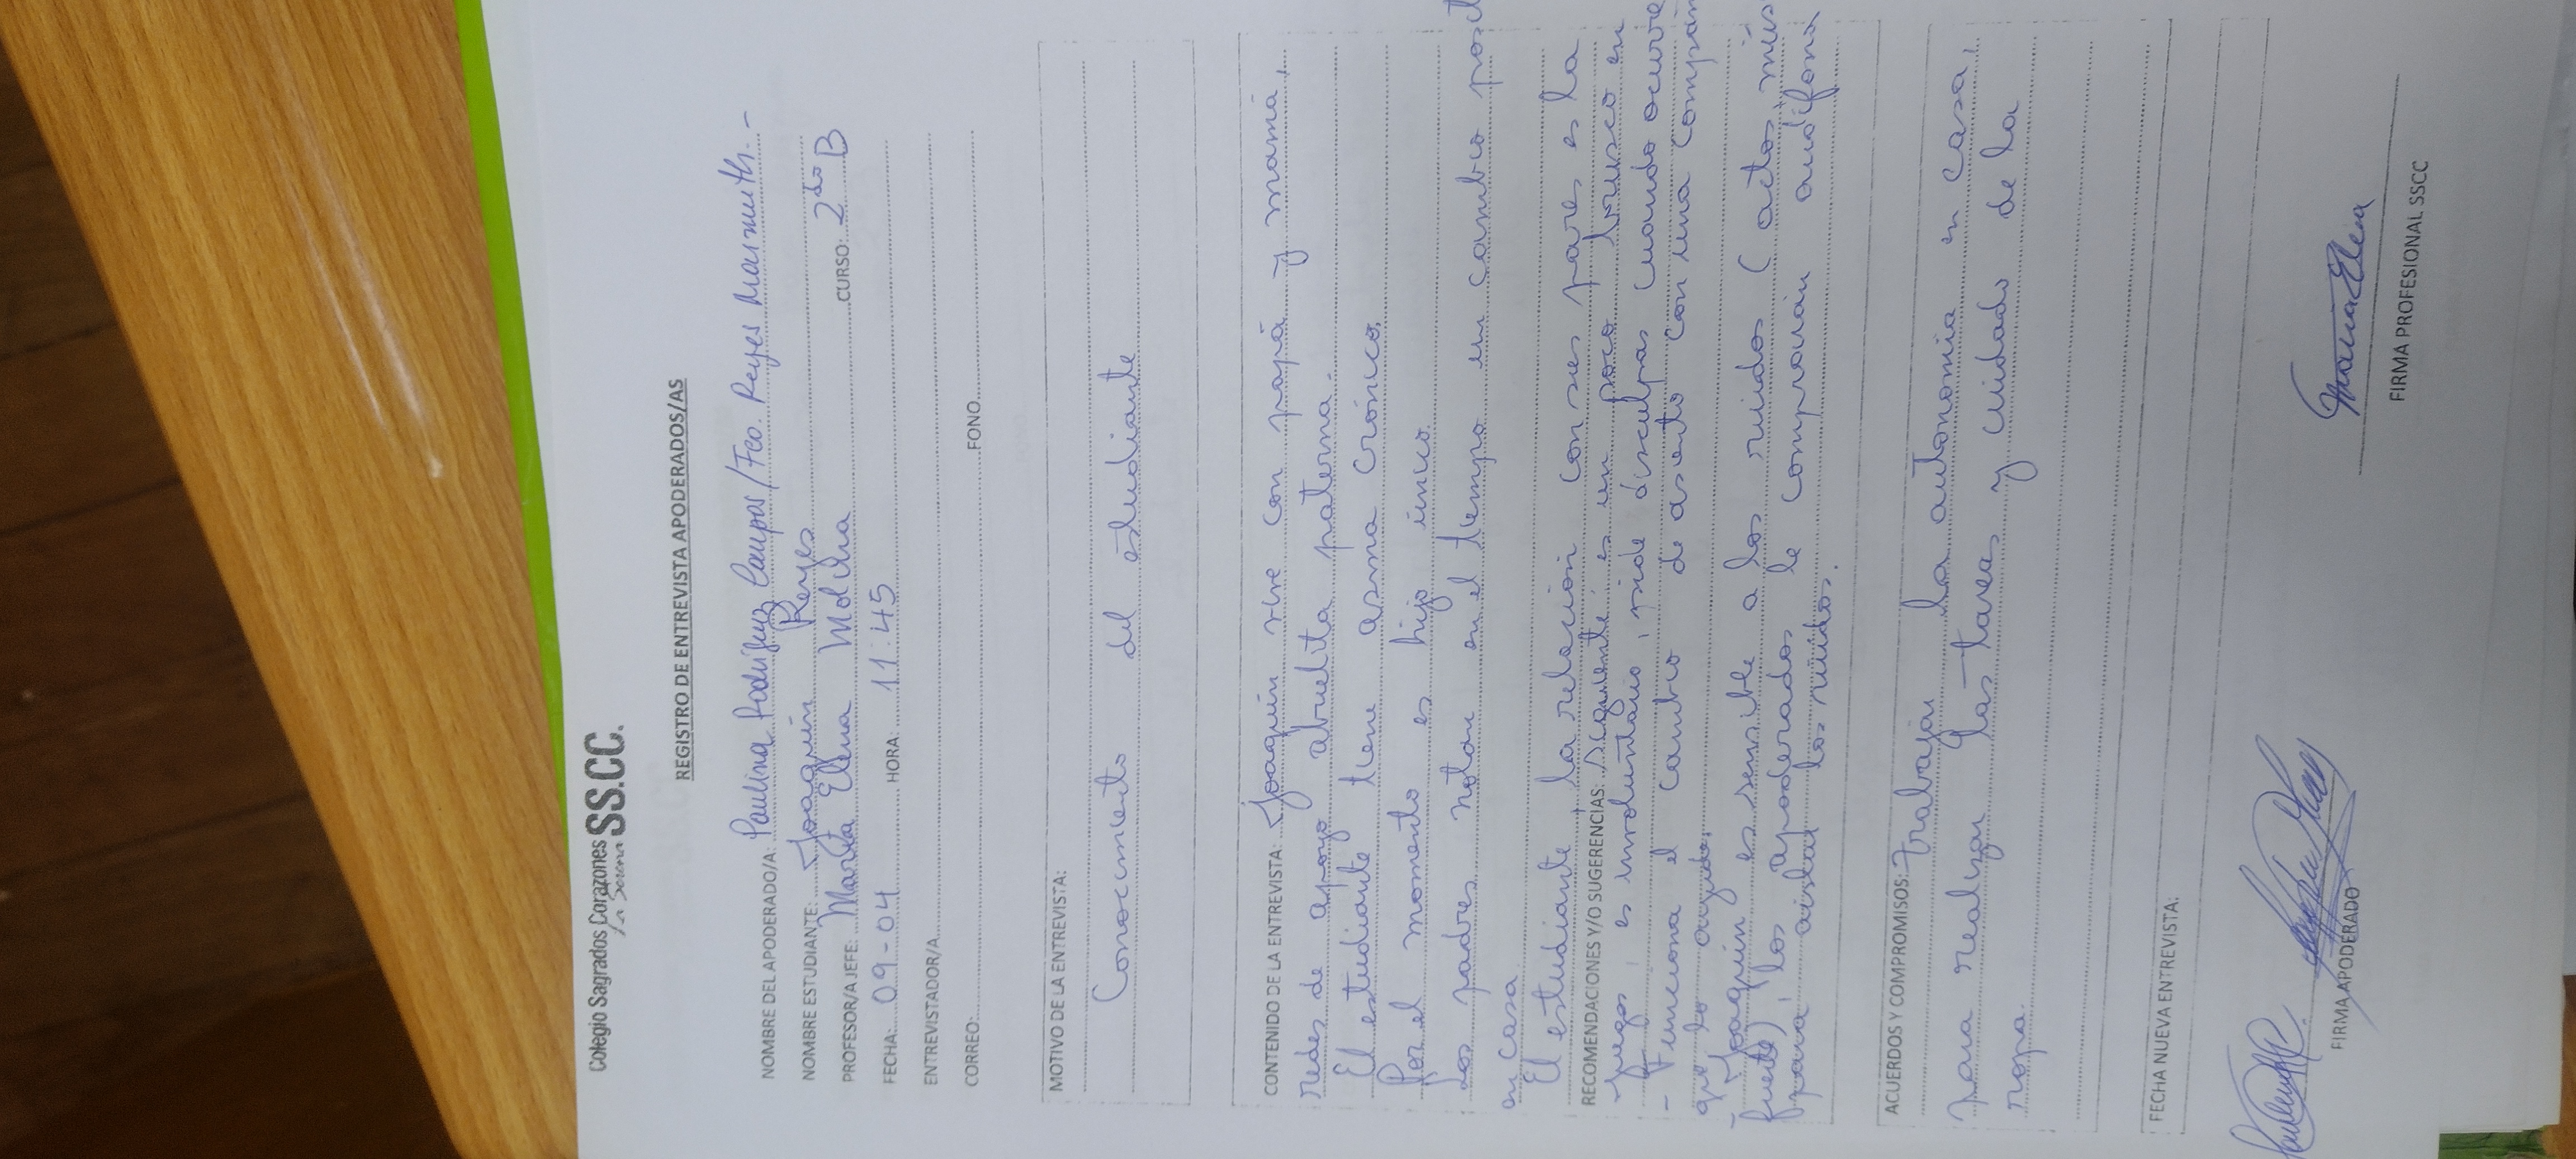 Colegio Sagrados Corazones SS.CC.
La Serena
REGISTRO DE ENTREVISTA APODERADOS/AS
NOMBRE DEL APODERADO/A: Paulina Rodríguez Campos / Fco. Reyes Marmuth.-
NOMBRE ESTUDIANTE: Joaquín Reyes
PROFESOR/A JEFE: María Elena Molina CURSO: 2do B
FECHA: 09-04 HORA: 11:45
ENTREVISTADOR/A
CORREO: FONO
MOTIVO DE LA ENTREVISTA:
Conocimiento del estudiante
CONTENIDO DE LA ENTREVISTA: Joaquín vive con papá y mamá,
redes de apoyo abuelita paterna.
El estudiante tiene asma crónico.
Por el momento es hijo único.
Los padres notan en el tiempo un cambio posit
en casa
El estudiante, la relación con sus pares es la
RECOMENDACIONES Y/O SUGERENCIAS: siguiente: es un poco brusco en
juego, es involuntario, pide disculpas cuando ocurre
- Funciona el cambio de asiento con una compañ
que lo ayude.
- Joaquín es sensible a los ruidos (actos, mús
fuerte), los apoderados le comprarán audífonos
para aislar los ruidos.
ACUERDOS Y COMPROMISOS: Trabajar la autonomía en casa,
para realizar las tareas y cuidado de la
ropa.
FECHA NUEVA ENTREVISTA:
FIRMA APODERADO
María Elena
FIRMA PROFESIONAL SSCC